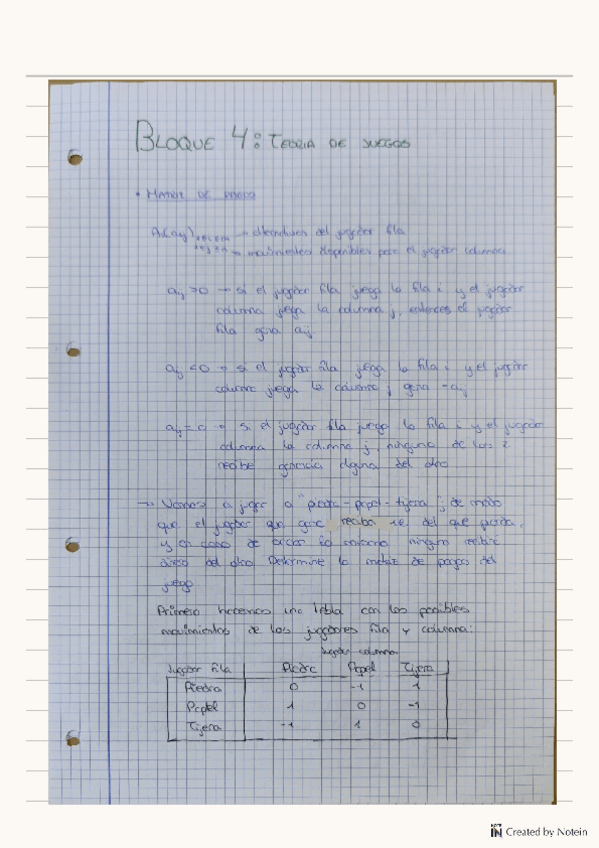 BLOQUE 4: TEORIA DE JUEGOS
• MATRIZ DE PAGOS
→ alternativas del jugador fila
→ movimientos disponibles para el jugador columna
aij >0 → si el jugador fila juega la fila i y el jugador
columna juega la columna j, entonces el jugador
fila gana aij
aij <0 → si el jugador fila juega la fila i y el jugador
columna juega la columna j gana -aij
aij = 0 → si el jugador fila juega la fila i y el jugador
columna la columna j, ninguno de los 2
recibe ganancia alguna del otro
→ Vamos a jugar a "piedra-papel-tijera", de modo
que el jugador que gane reciba 1€ del que pierda,
y en caso de ninguno recibirá
dinero del otro. Determine la matriz de pagos del
juego
Primero hacemos una tabla con los posibles
movimientos de los jugadores fila y columna:
Jugador columna
Jugador fila Piedra Papel Tijera
Piedra 0 -1 1
Papel 1 0 -1
Tijera -1 1 0
NOTE IN Created by Notein